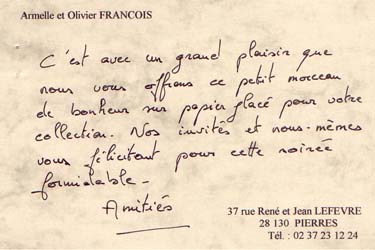 Armelle et Olivier FRANCOIS
C'est avec un grand plaisir que
nous vous offrons ce petit morceau
de bonheur sur papier glacé pour votre
collection. Nos invités et nous-mêmes
vous félicitont pour cette soirée
formidable.
Amitiés
37 rue René et Jean LEFEVRE
28 130 PIERRES
Tél. : 02 37 23 12 24